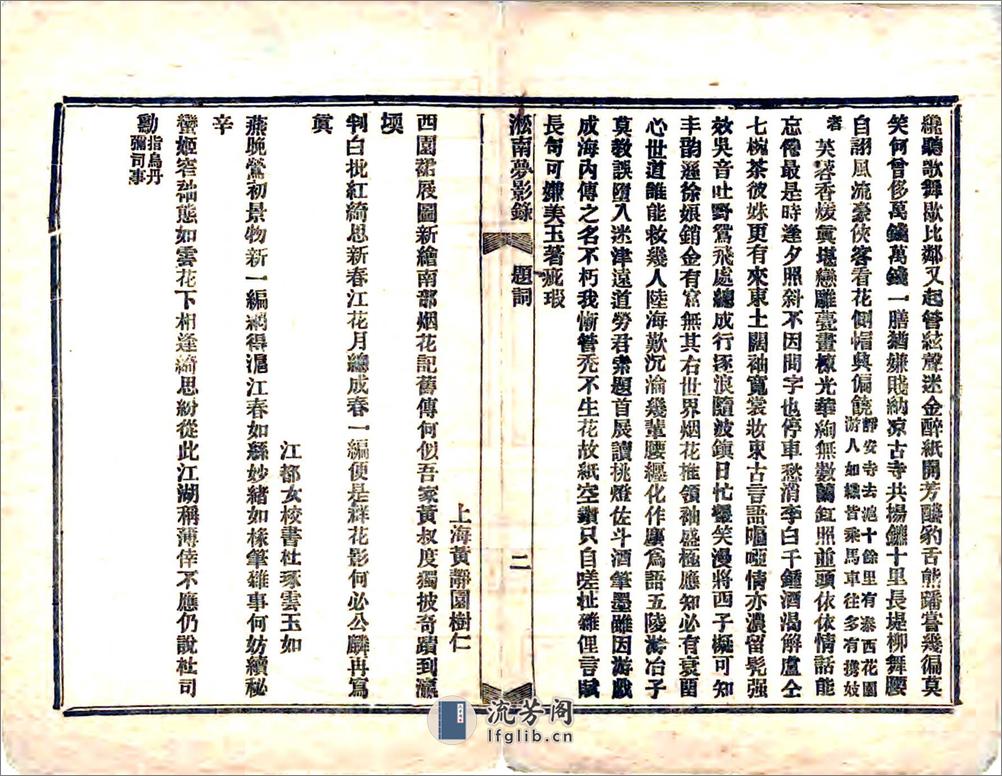 纔聽歌舞歇比鄰又起管絃聲迷金醉紙開芳醼豹舌熊蹯嘗幾徧莫
笑何曾侈萬錢萬錢一膳猶嫌賤納凉古寺共揚鑣十里長堤柳舞腰
自詡風流豪俠客看花側帽興偏饒靜安寺去滬十餘里有泰西花園游人如織皆乘馬車往多有攜妓
者 芙蓉香煖眞堪戀雕甍畫棟光華絢無數蘭釭照並頭依依情話能
忘倦最是時逢夕照斜不因問字也停車愁消李白千鍾酒渴解盧仝
七椀茶彼姝更有來東土闊袖寬裳妝束古言語嘔啞情亦濃留髠強
效吳音吐野鴛飛處總成行逐浪隨波鎮日忙顰笑漫將西子擬可知
丰韻遜徐娘銷金有窩無其右世界烟花推領袖盛極應知必有衰囬
心世道誰能救幾人陸海歎沉淪幾輩腰纏化作塵爲語五陵游冶子
莫教誤墮入迷津遠道勞君索題首展讀挑燈佐斗酒筆墨雖因游戲
成海內傳之名不朽我慚管禿不生花故紙空鑽只自嗟扯雜俚言賦
長句可嫌美玉著疵瑕
淞南夢影錄 題詞 二
上海黃靜園樹仁
西園裙展圖新繪南部烟花記舊傳何似吾家黃叔度獨披奇蹟到瀛
壖
判白批紅綺思新春江花月總成春一編便是羣花影何必公麟再寫
眞
江都女校書杜琢雲玉如
燕晚鶯初景物新一編網得滬江春如絲妙緒如椽筆雜事何妨續祕
辛
蠻姬窄袖態如雲花下相逢綺思紛從此江湖稱薄倖不應仍說杜司
勳指烏丹彌司事
流芳阁
lfglib.cn